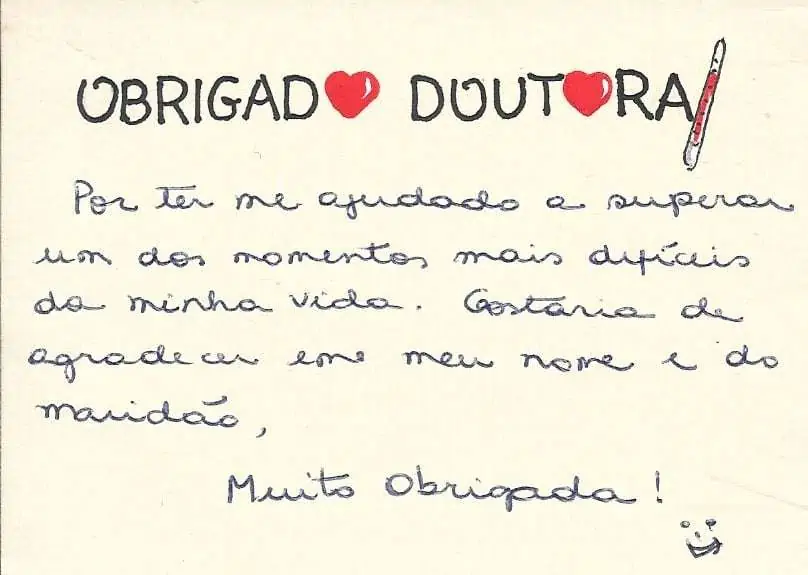 OBRIGADO DOUTORA
Por ter me ajudado a superar
um dos momentos mais difíceis
da minha vida. Gostaria de
agradecer em meu nome e do
maridão,
Muito Obrigada!